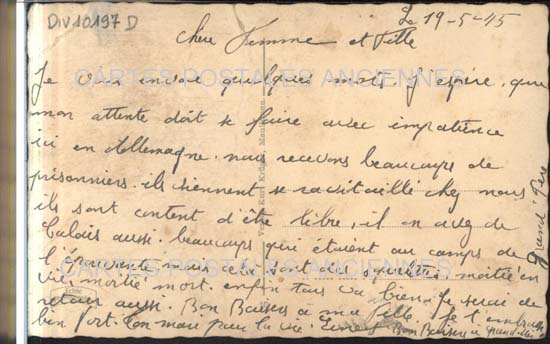 DIV10197D
Le 19-5-45
Chere Femme et Fille
Je vous envoie quelques mots J espére, que
mon attente doit se faire avec impatience
ici en Allemagne. nous recevons beaucoups de
prisonniers. ils viennent se ravitaillé chez nous
ils sont content d'être libre, il en a de
Calais aussi. beaucoups qui étaient au camps de
sont des squelettes, moitié en
vie, moitié mort. enfin tout va bien. Je serai de
retour aussi. Bon Baisers a ma Fille. Je t'embrasse
bien fort. ton mari pour la vie. Bon Baisers a
grand. Père
CARTES POSTALES ANCIENNES
CARTES POSTALES ANCIENNES